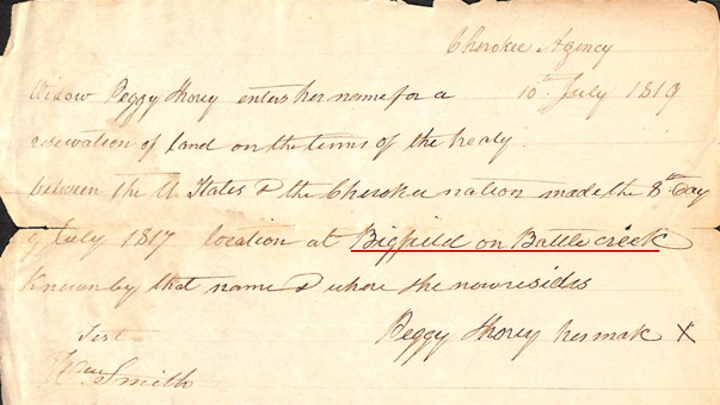 Cherokee Agency
Widow Peggy Shorey enters her name for a 10th July 1819
reservation of land on the terms of the treaty
between the U States & the Cherokee nation made the 8th day
of July 1817 location at Bigfield on Battle creek
Known by that name & where she now resides
Peggy Shorey her mark X
Test
Wm Smith